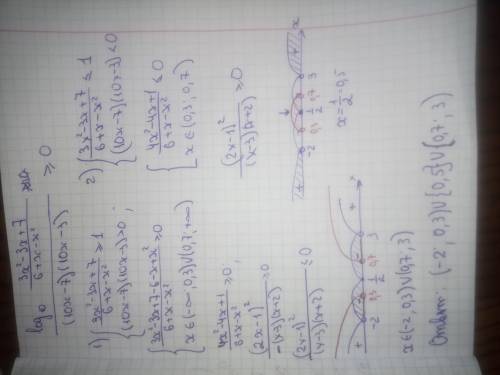 log₁₀ (3x²-3x+7)/(6+x-x²)
/ (10x-7)(10x-3) ≥ 0
1) { (3x²-3x+7)/(6+x-x²) ≥ 1
(10x-7)(10x-3)>0 ;
{ (3x²-3x+7-6-x+x²)/(6+x-x²) ≥0
x∈(-∞; 0,3)∪(0,7;+∞)
(4x²-4x+1)/(6+x-x²) ≥0;
(2x-1)²/(-(x-3)(x+2)) ≥0
(2x-1)²/((x-3)(x+2)) ≤0
+ - - - - +
-2 0,3 1/2 0,7 3 x
x∈(-2; 0,3)∪(0,7; 3)
2) { (3x²-3x+7)/(6+x-x²) ≤ 1
(10x-7)(10x-3)<0
{ (4x²-4x+1)/(6+x-x²) ≤0
x∈(0,3; 0,7)
(2x-1)²/((x-3)(x+2)) ≥0
+ - - +
-2 0,3 1/2 0,7 3 x
x=1/2=0,5
Ответ: (-2; 0,3)∪{0,5}∪(0,7; 3)